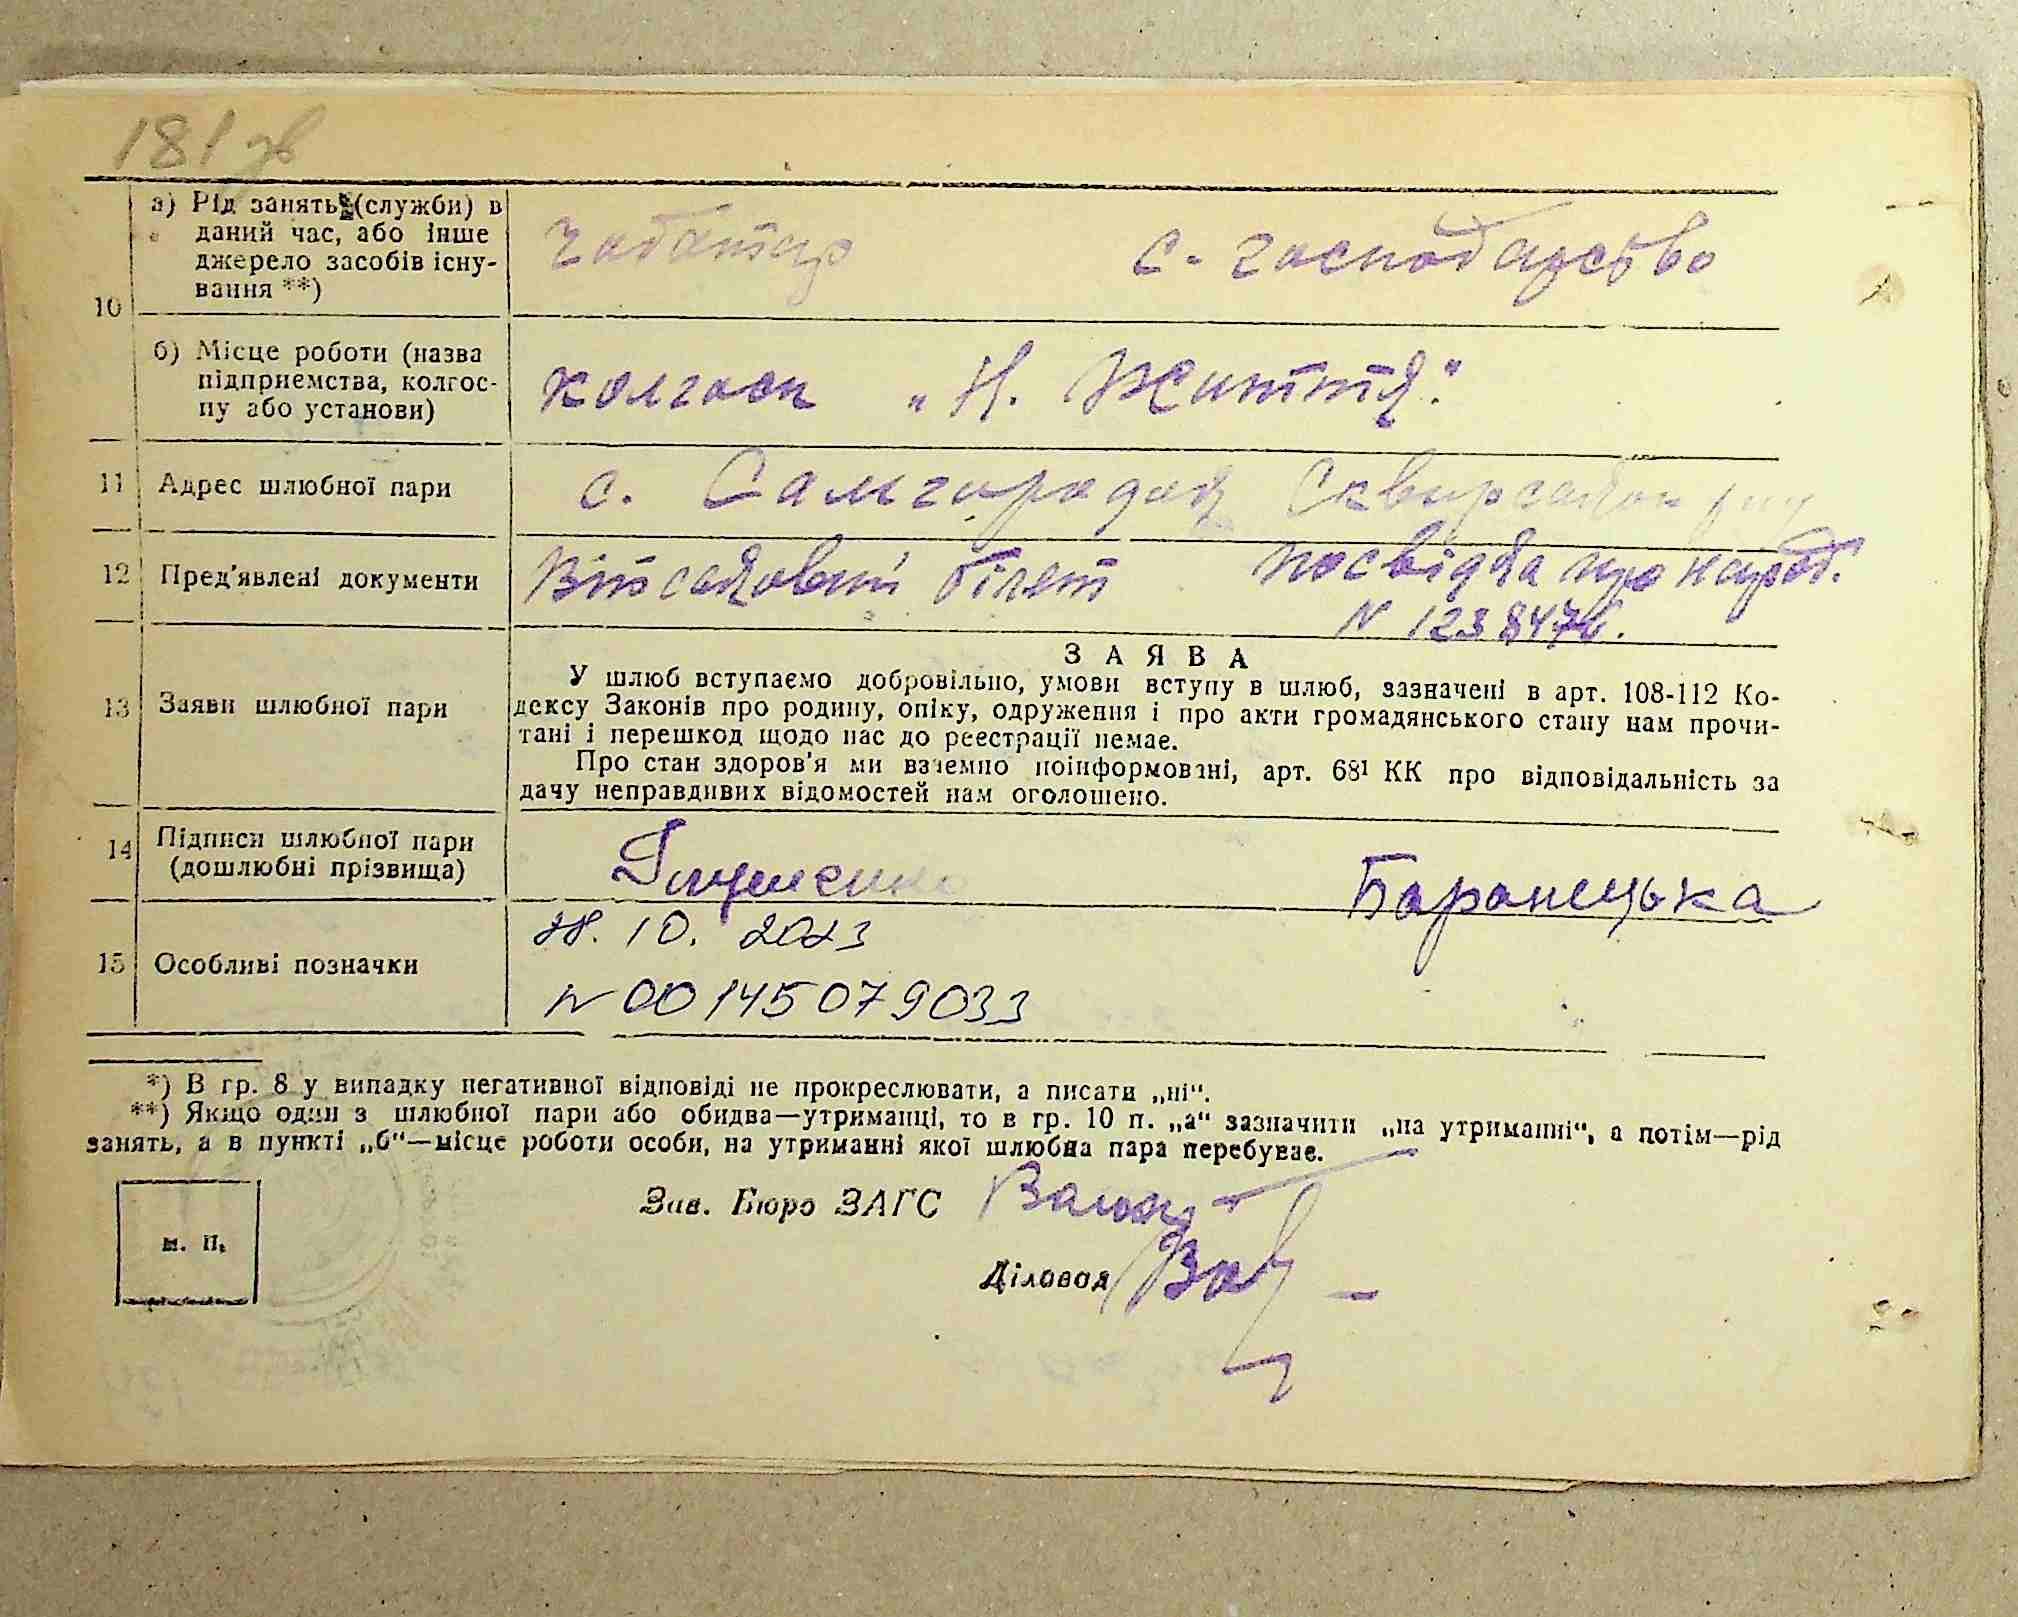 181 зв
10
а) Рід занять (служби) в даний час, або інше джерело засобів існування **)
с. господарство
б) Місце роботи (назва підприємства, колгоспу або установи)
колгосп „Н. Життя"
11 Адрес шлюбної пари
с. Самгородок Сквирський р-ну
12 Пред'явлені документи
Військовий білет посвідка про народ.
N 1238476.
13 Заяви шлюбної пари
ЗАЯВА
У шлюб вступаємо добровільно, умови вступу в шлюб, зазначені в арт. 108-112 Ко-
дексу Законів про родину, опіку, одруження і про акти громадянського стану нам прочи-
тані і перешкод щодо нас до реєстрації немає.
Про стан здоров'я ми взаємно поінформовані, арт. 68¹ КК про відповідальність за
дачу неправдивих відомостей нам оголошено.
14 Підписи шлюбної пари (дошлюбні прізвища)
Баранецька
15 Особливі позначки
10. 2023
N 00145079033
*) В гр. 8 у випадку негативної відповіді не прокреслювати, а писати „ні".
**) Якщо один з шлюбної пари або обидва—утриманці, то в гр. 10 п. „а" зазначити „на утриманні", а потім—рід
занять, а в пункті „б"—місце роботи особи, на утриманні якої шлюбна пара перебуває.
м. п.
Зав. Бюро ЗАГС
Діловод